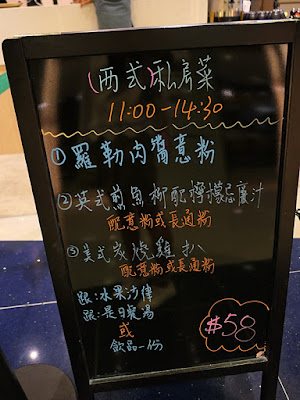 (西式)私房菜
11:00-14:30
①羅勒肉醬意粉
②英式煎魚柳配檸檬忌廉汁
配意粉或長通粉
③美式炭燒雞扒
配意粉或長通粉
跟:水果沙律
跟:是日餐湯
或
飲品一份
$58